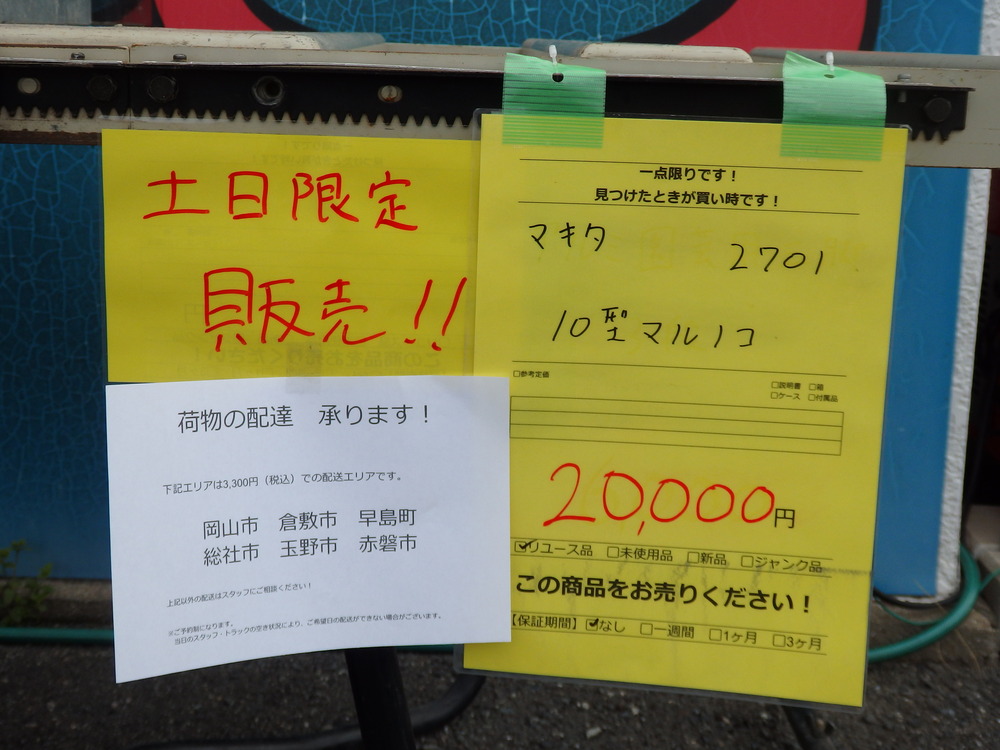 土日限定
販売!!
荷物の配達　承ります！
下記エリアは3,300円（税込）での配送エリアです。
岡山市　倉敷市　早島町
総社市　玉野市　赤磐市
上記以外の配送はスタッフにご相談ください！
※ご予約制になります。
当日のスタッフ・トラックの空き状況により、ご希望日の配送ができない場合がございます。
一点限りです！
見つけたときが買い時です！
マキタ　2701
10型マルノコ
□参考定価
□説明書　□箱
□ケース　□付属品
20,000円
☑リユース品　□未使用品　□新品　□ジャンク品
この商品をお売りください！
【保証期間】☑なし　□一週間　□1ヶ月　□3ヶ月